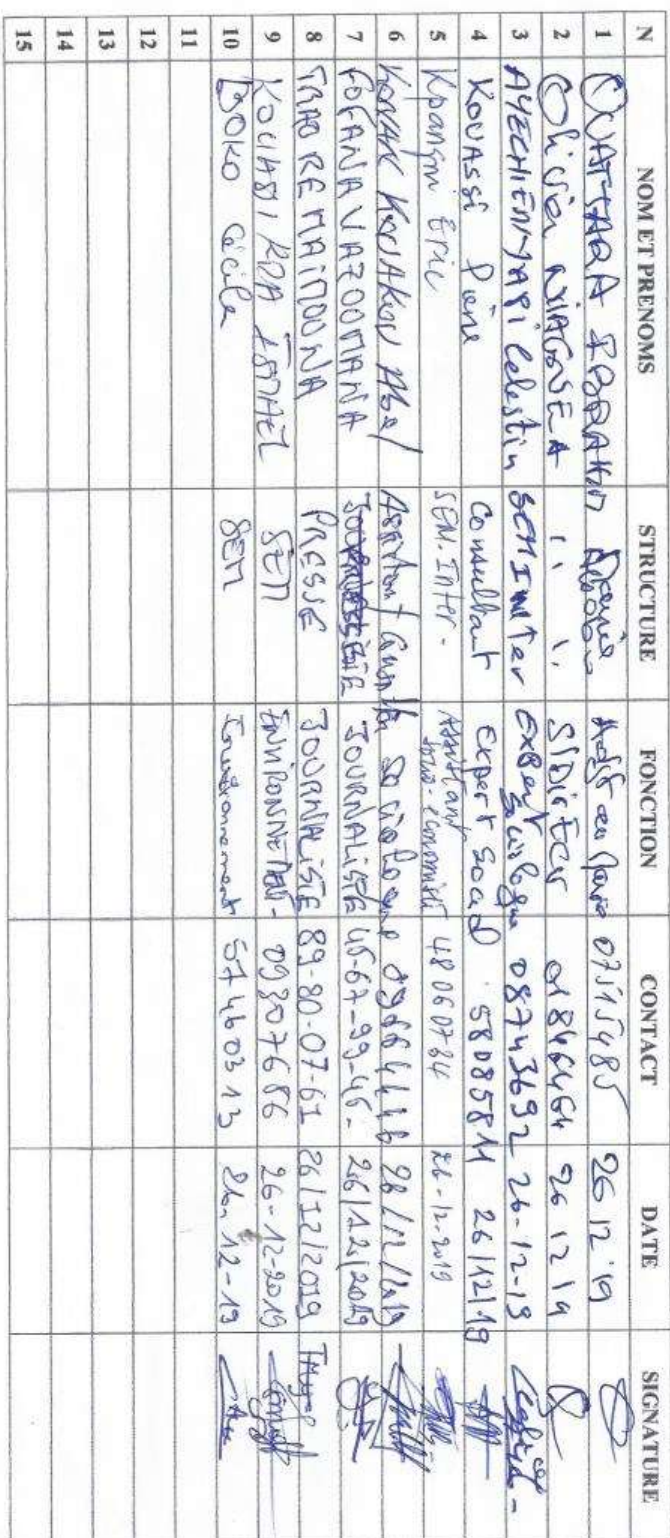 N NOM ET PRENOMS STRUCTURE FONCTION CONTACT DATE SIGNATURE
1 OUATTARA 07515485 26 12 19
2 Olivia S/Directer 01846464 26 12 19
3 AYECHI EPI YAPI Celestin SEM Inter Expert Sociologue 08743692 26-12-19
4 KOUASSI Consultant Expert Social 58085811 26/12/19
5 Kpangni Eric SEM. Inter - Assistant socio-économiste 48060734 26-12-2019
6 KONAN KOUAKOU Abel Assistant Consultant Sociologue 26/12/2019
7 FOFANA VAZOOMANA JOURNALISTE 45-67-99-45- 26/12/2019
8 TRAORE MAIMOUNA PRESSE JOURNALISTE 89-80-07-61 26/12/2019
9 KOUASSI KRA ISMAEL SEM ENVIRONNEMENT- 09307686 26-12-2019
10 BOKO Cécile SEM Environnement 57460313 26-12-19
11
12
13
14
15